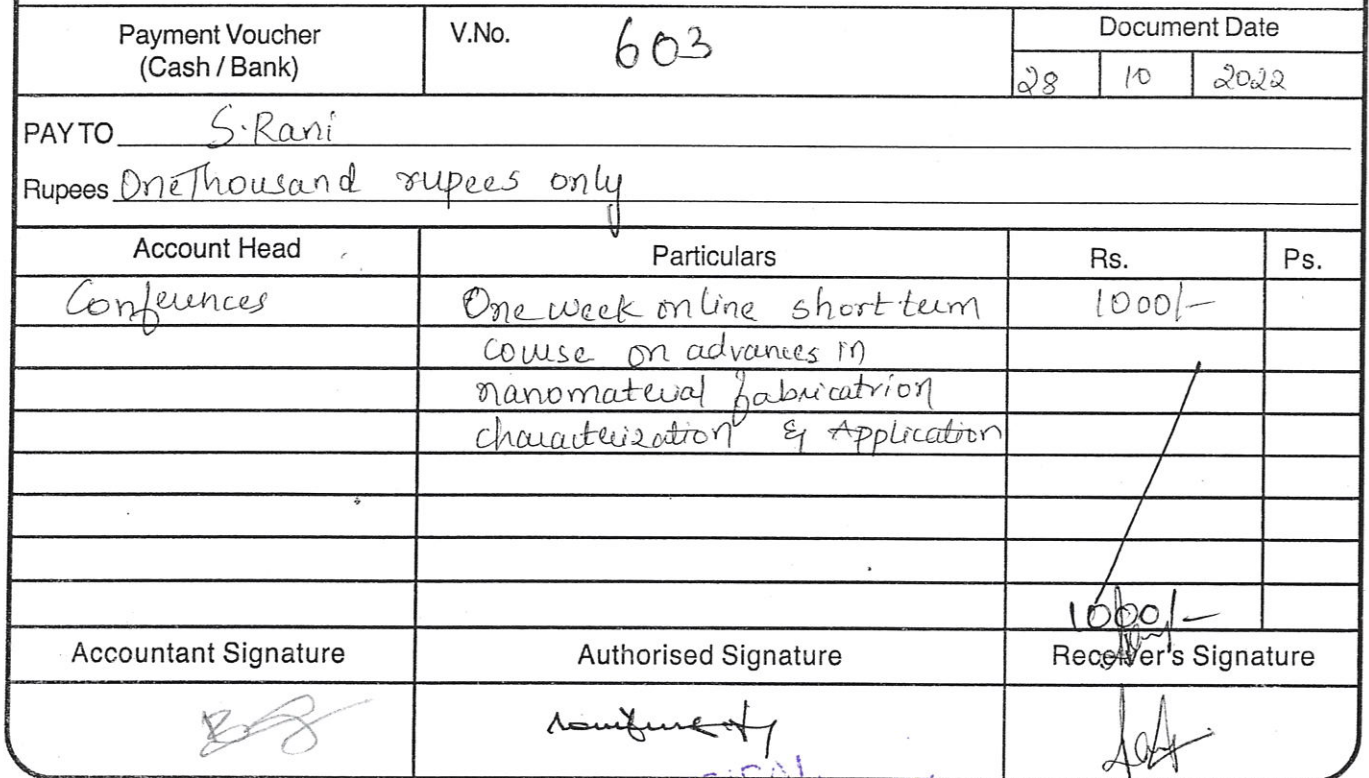 Payment Voucher
(Cash / Bank)
V.No. 603
Document Date
28 10 2022
PAY TO S. Rani
Rupees One Thousand rupees only
Account Head Particulars Rs. Ps.
Conferences One week online short term 1000/-
course on advances in
nanomaterial fabricatrion
characterization & Application
1000/-
Accountant Signature Authorised Signature Receiver's Signature